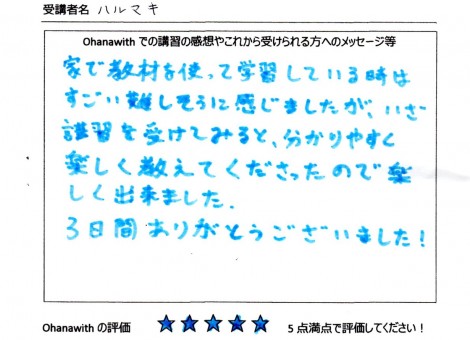 受講者名 ハルマキ
Ohanawith での講習の感想やこれから受けられる方へのメッセージ等
家で教材を使って学習している時は
すごい難しそうに感じましたが、いざ
講習を受けてみると、分かりやすく
楽しく教えてくださったので楽
しく出来ました。
3日間ありがとうございました!
Ohanawith の評価 ★★★★★ 5点満点で評価してください!